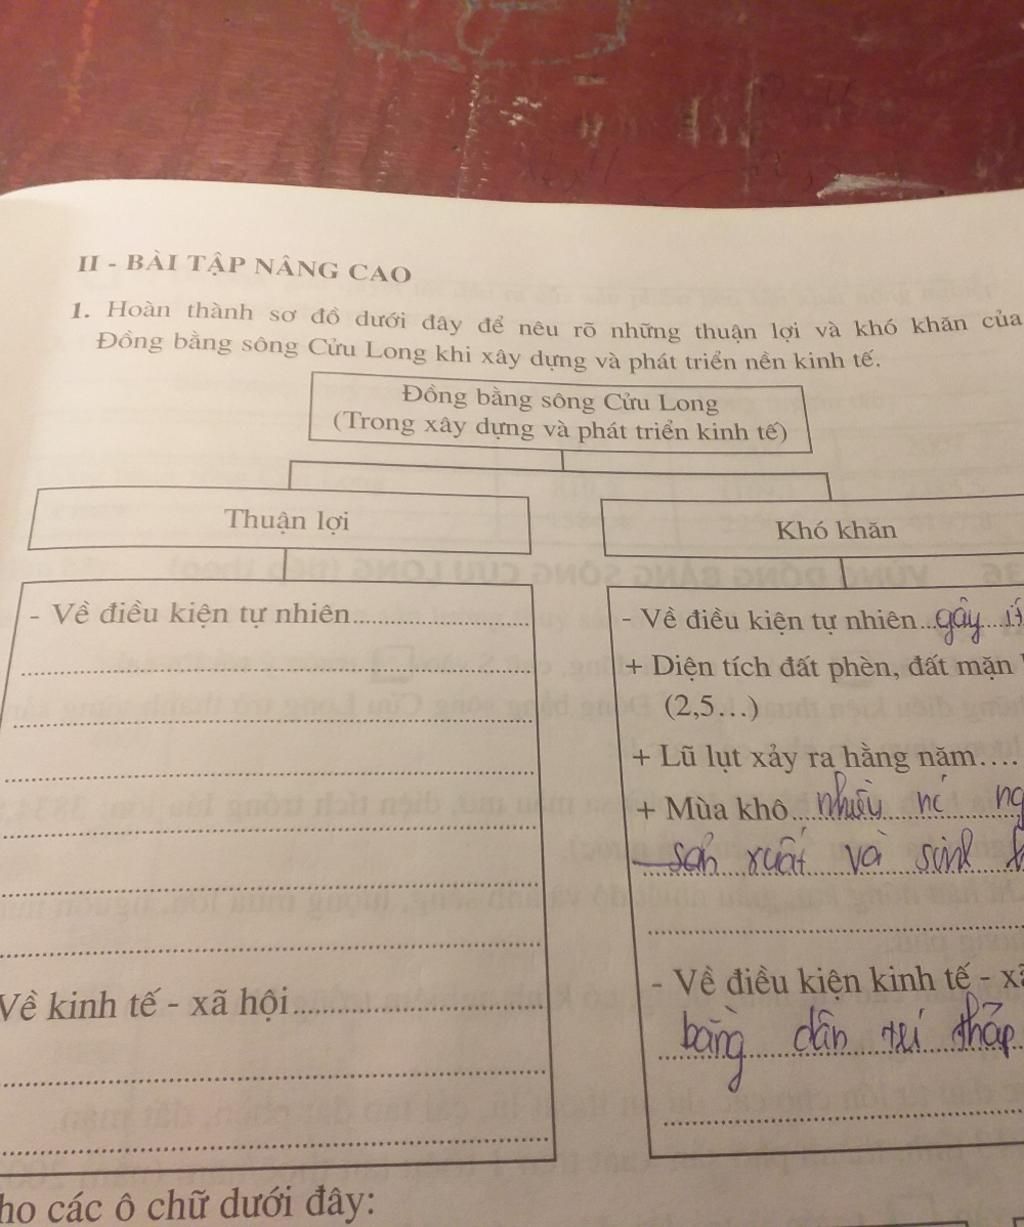 II - BÀI TẬP NÂNG CAO
1. Hoàn thành sơ đồ dưới đây để nêu rõ những thuận lợi và khó khăn của
Đồng bằng sông Cửu Long khi xây dựng và phát triển nền kinh tế.
Đồng bằng sông Cửu Long
(Trong xây dựng và phát triển kinh tế)
Thuận lợi
- Về điều kiện tự nhiên
Về kinh tế - xã hội
Khó khăn
- Về điều kiện tự nhiên...gây
+ Diện tích đất phèn, đất mặn
(2,5...)
+ Lũ lụt xảy ra hằng năm....
+ Mùa khô...
sản xuất và sinh
- Về điều kiện kinh tế - xã
bằng dân trí thấp
ho các ô chữ dưới đây: